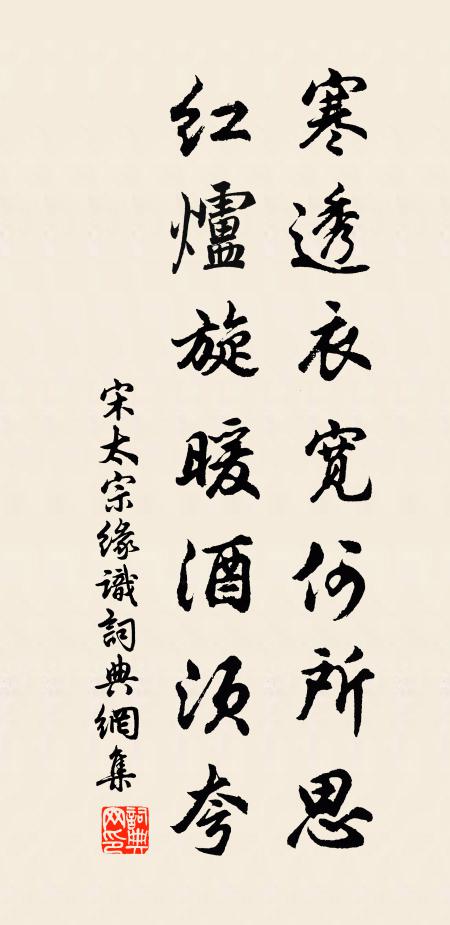 寒透衣寬何所思
紅爐旋暖酒須夸
宋太宗緣識詞典網集
詞典网印